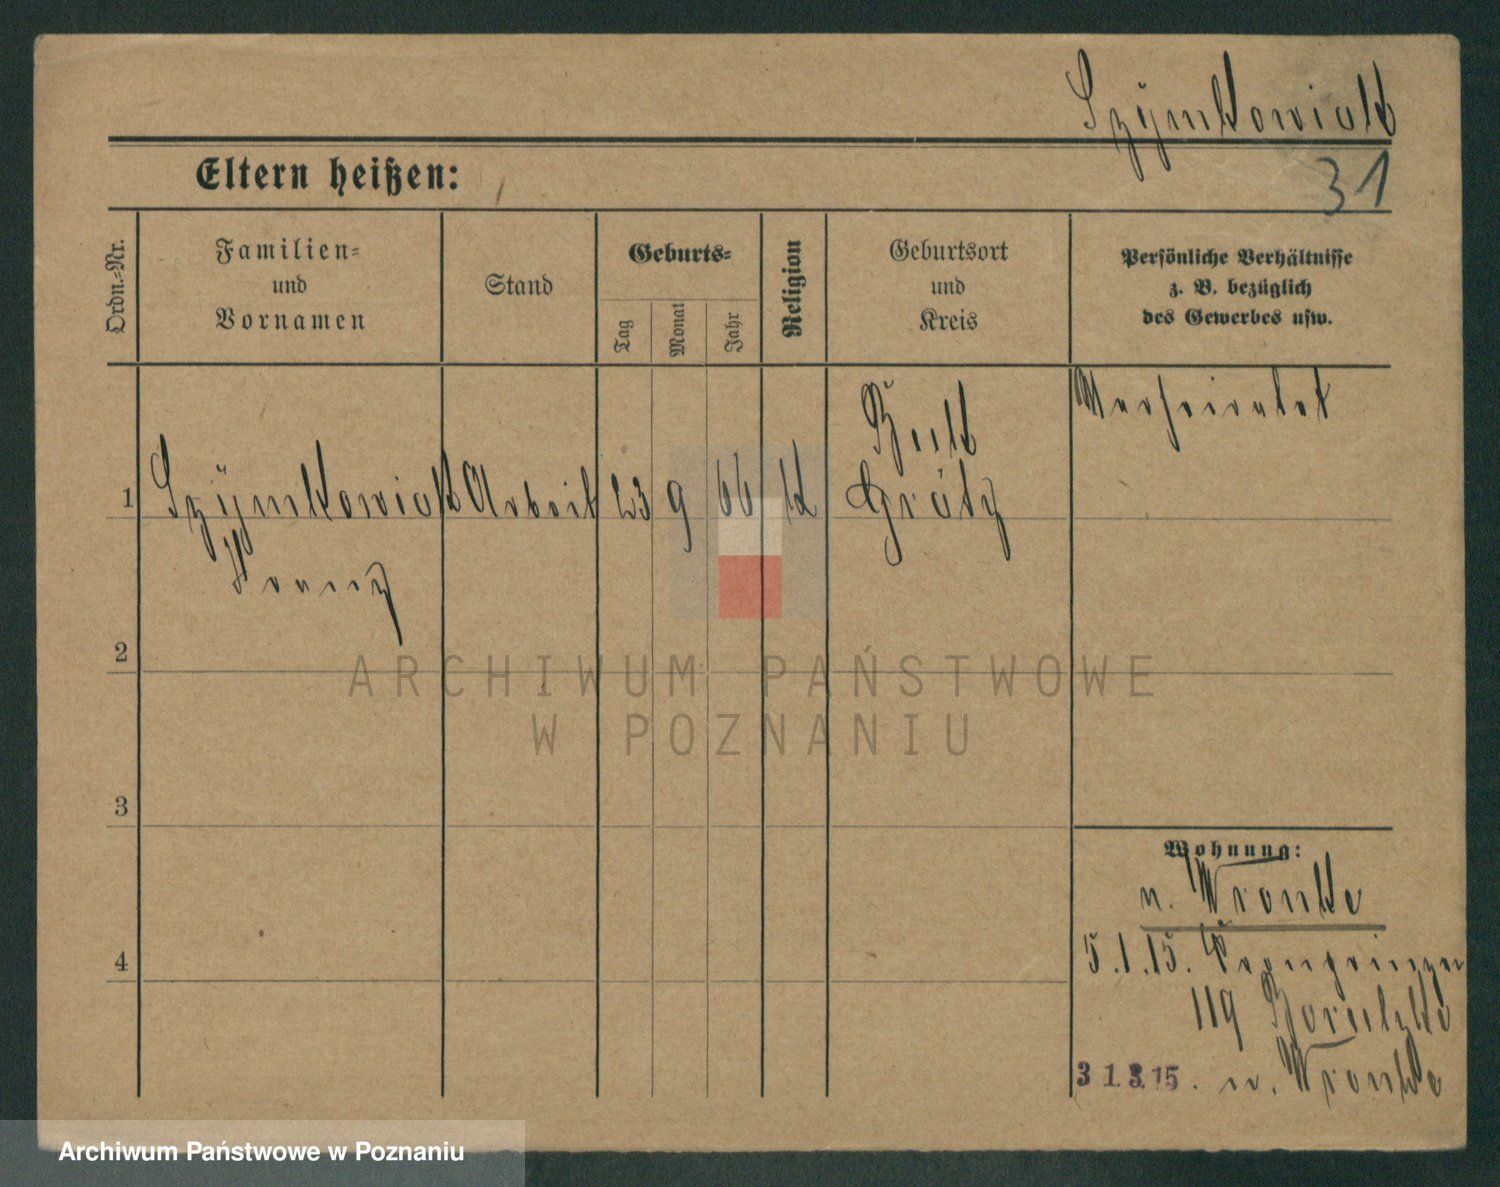 Szymkowiak
31
Eltern heißen:
Ordn.=Nr.
Familien=
und
Vornamen
Stand
Geburts=
Tag
Monat
Jahr
Religion
Geburtsort
und
Kreis
Persönliche Verhältnisse
z. B. bezüglich
des Gewerbes usw.
1
Szymkowiak
Franz
Arbeit
23
9
66
K
Buk
Grätz
Verheiratet
2
3
4
Wohnung:
n. Wronke
5.1.15. Kronprinzen
119
31.3.15. n. Wronke
ARCHIWUM PAŃSTWOWE
W POZNANIU
Archiwum Państwowe w Poznaniu